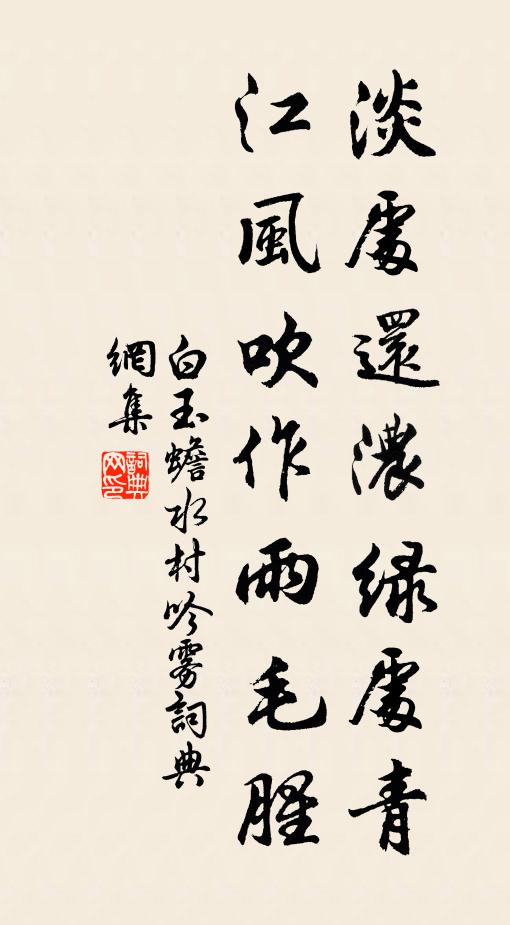 淡處還濃綠處青
江風吹作雨毛腥
白玉蟾水村吟霧詞典
網集
詞典網印